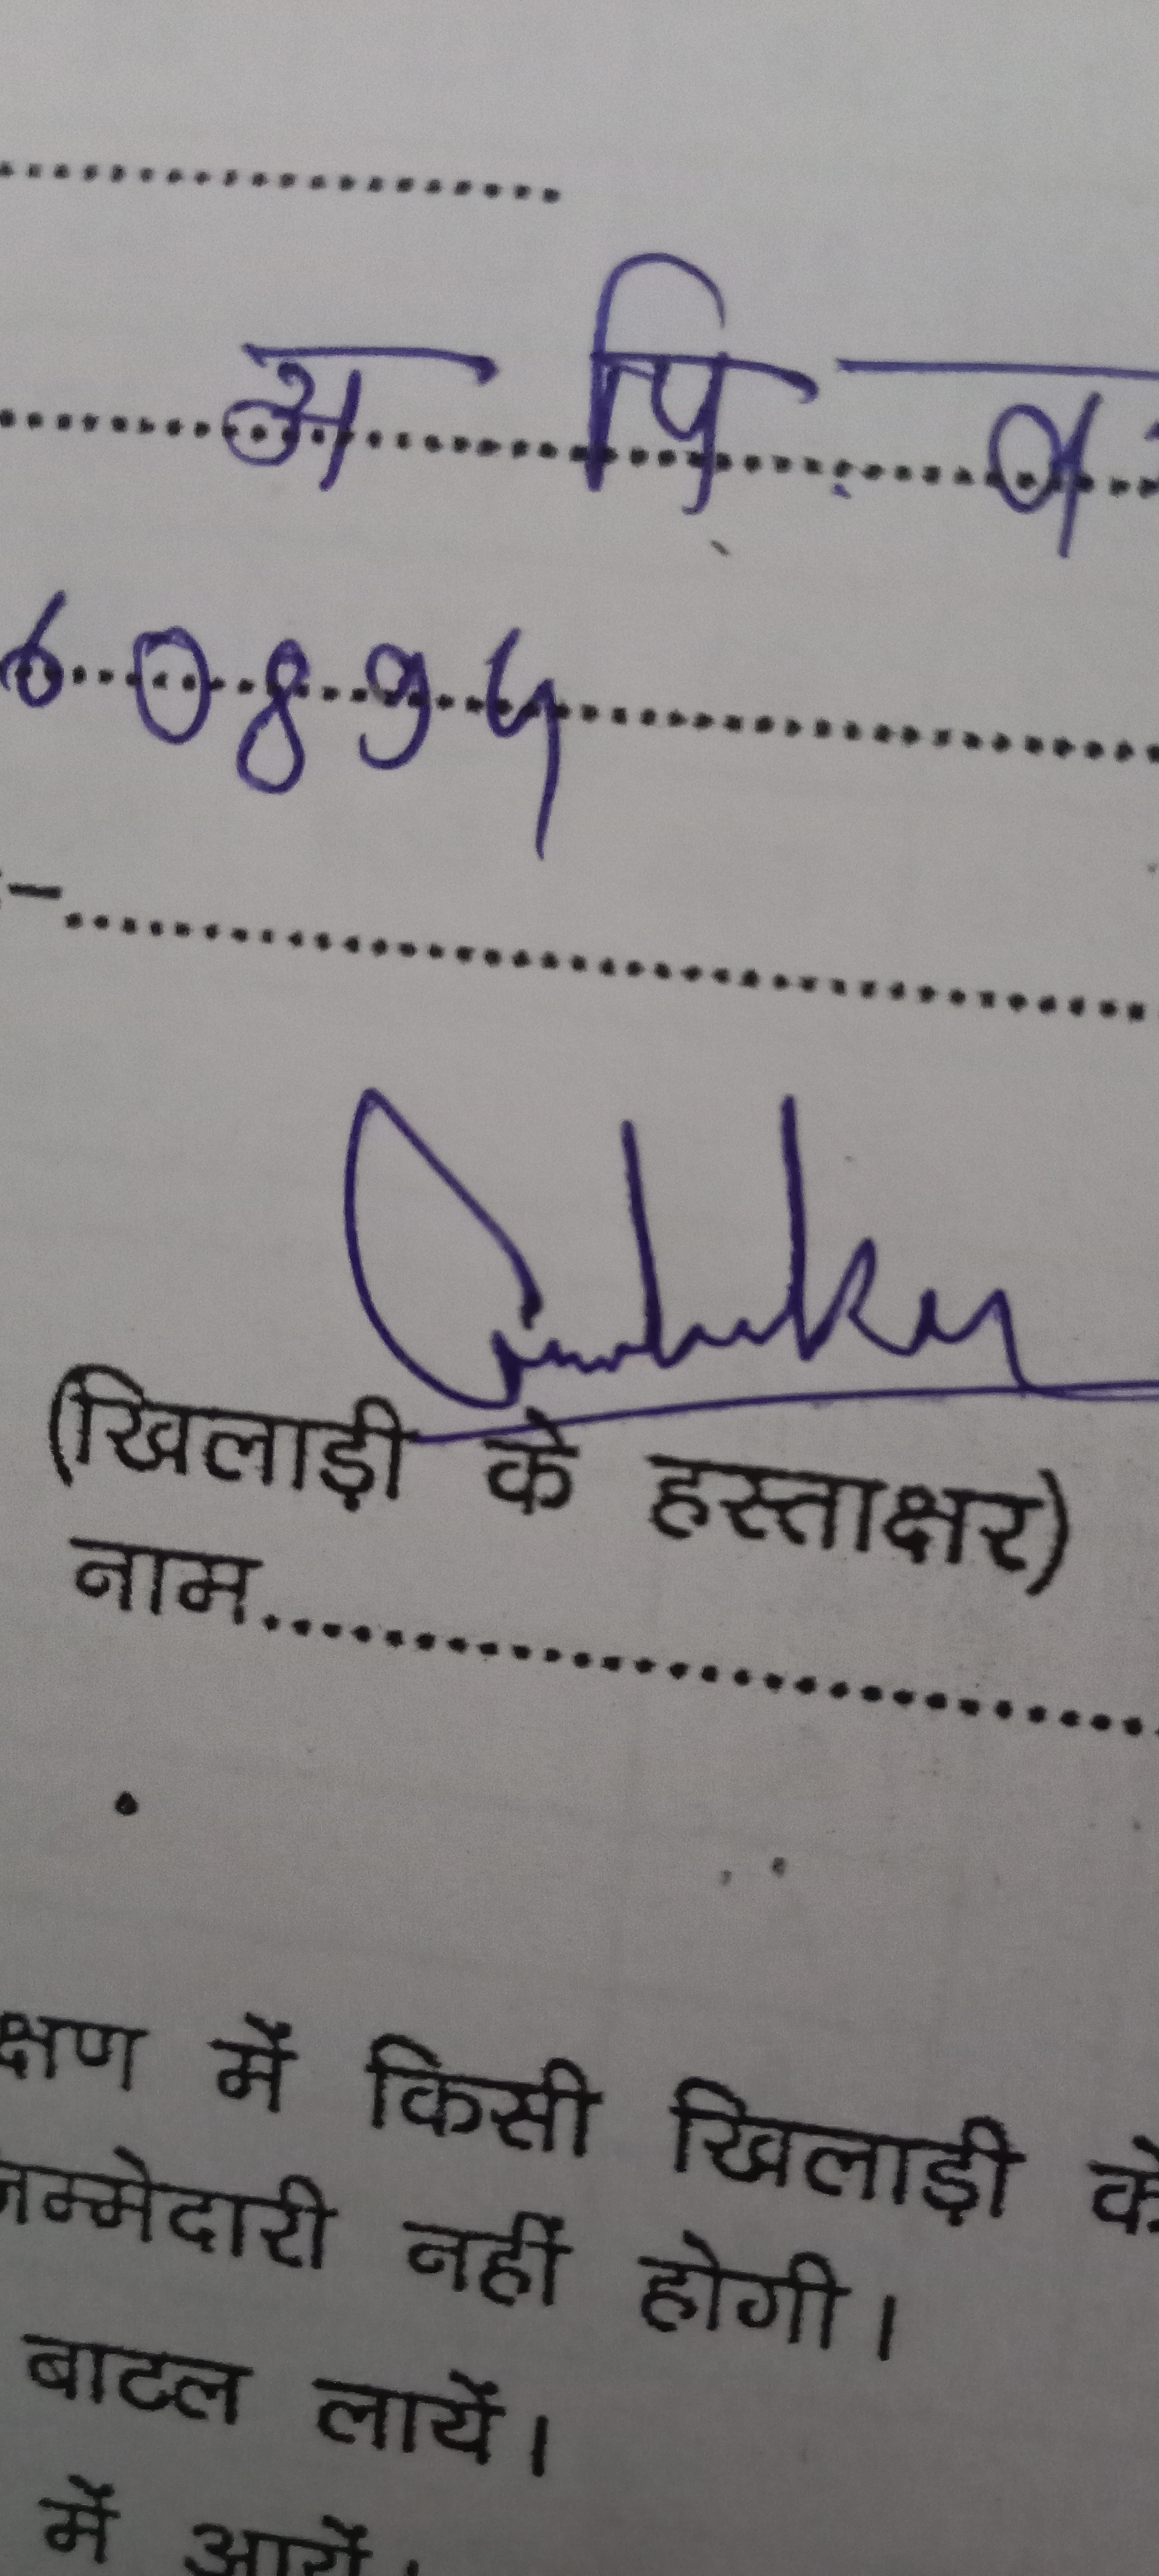 अ पि व
60894
:-
(खिलाड़ी के हस्ताक्षर)
नाम
क्षण में किसी खिलाड़ी के
जम्मेदारी नहीं होगी।
बाटल लायें।
में आयें।